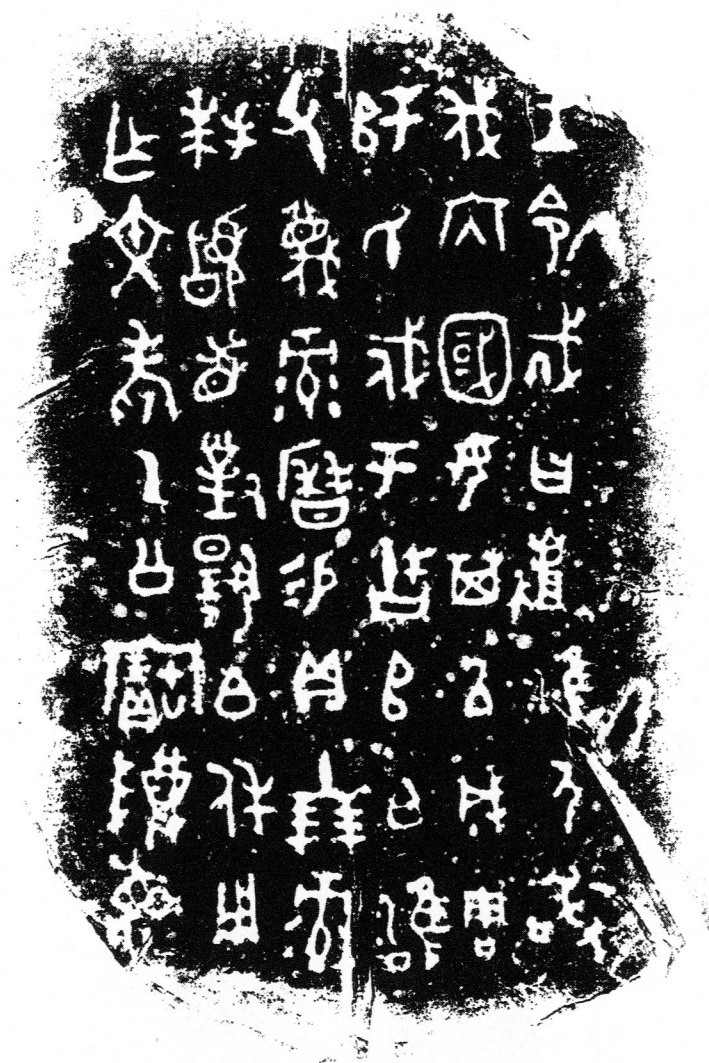 王令𢦚曰𠭯淮尸敢
伐内國女其以成周
師氏戍于𠙵𠂤白雝
父蔑彔曆易貝十朋彔
拜𩒨首對揚白休用
乍文考乙公寶𨻰彝